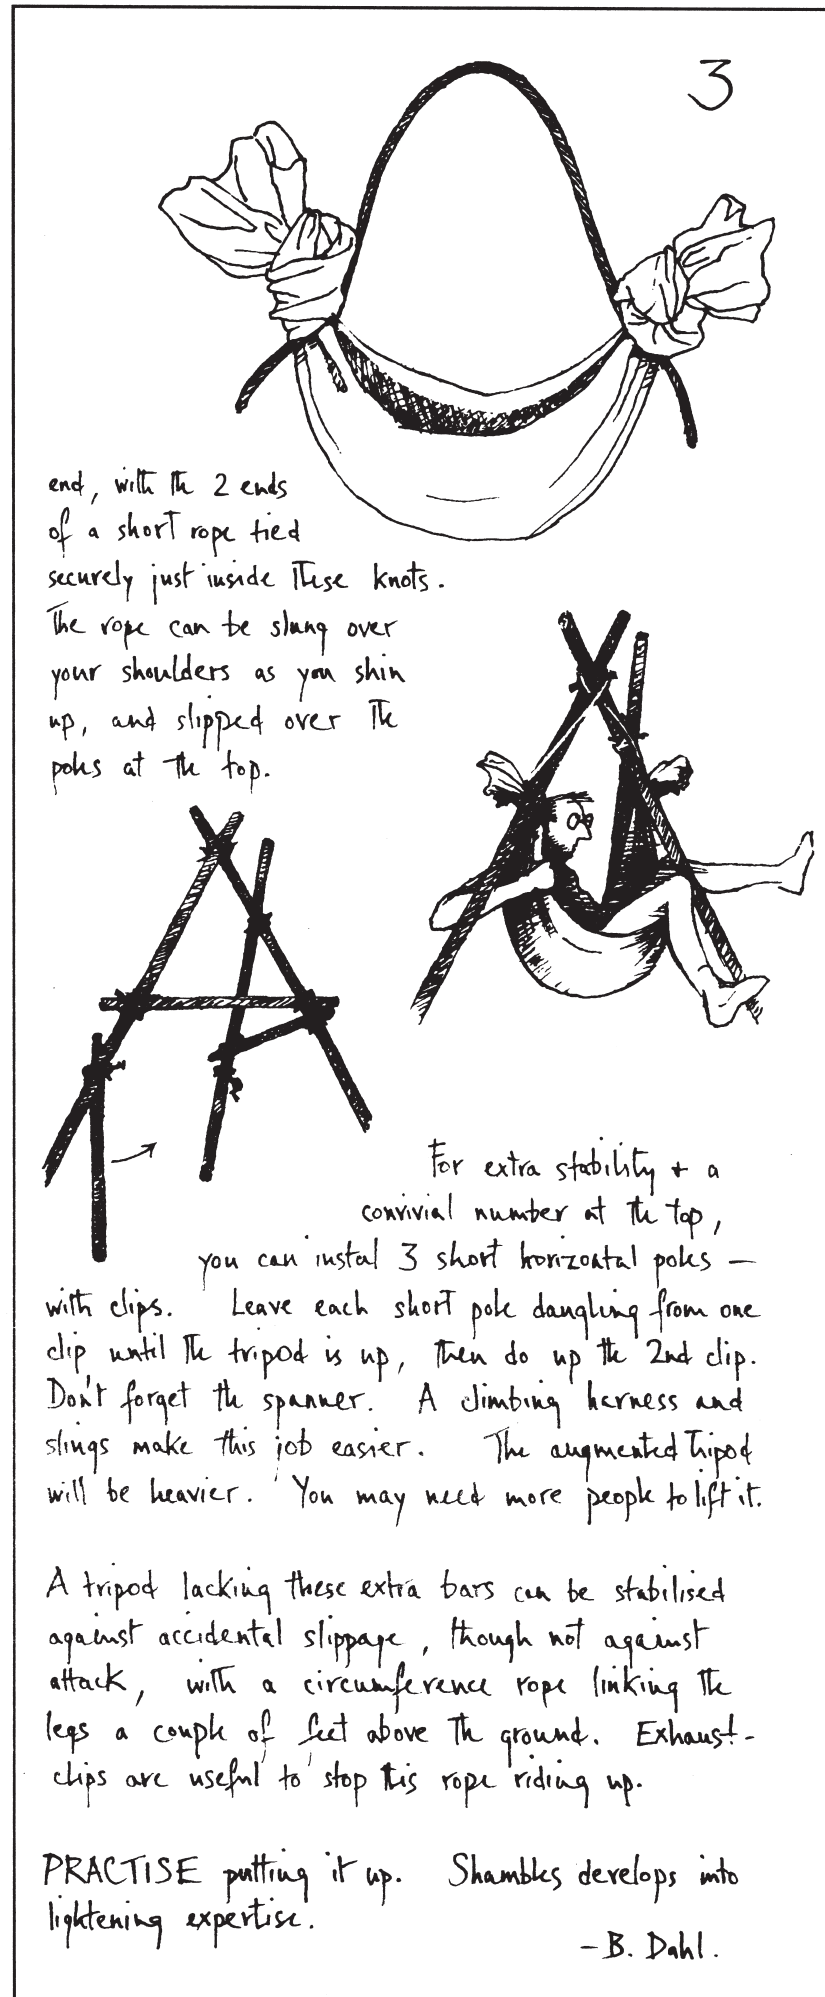 3
end, with the 2 ends
of a short rope tied
securely just inside these knots.
The rope can be slung over
your shoulders as you shin
up, and slipped over the
poles at the top.
For extra stability + a
convivial number at the top,
you can instal 3 short horizontal poles —
with clips. Leave each short pole dangling from one
clip until the tripod is up, then do up the 2nd clip.
Don't forget the spanner. A climbing harness and
slings make this job easier. The augmented tripod
will be heavier. You may need more people to lift it.
A tripod lacking these extra bars can be stabilised
against accidental slippage, though not against
attack, with a circumference rope linking the
legs a couple of feet above the ground. Exhaust-
clips are useful to stop this rope riding up.
PRACTISE putting it up. Shambles develops into
lightening expertise.
- B. Dahl.